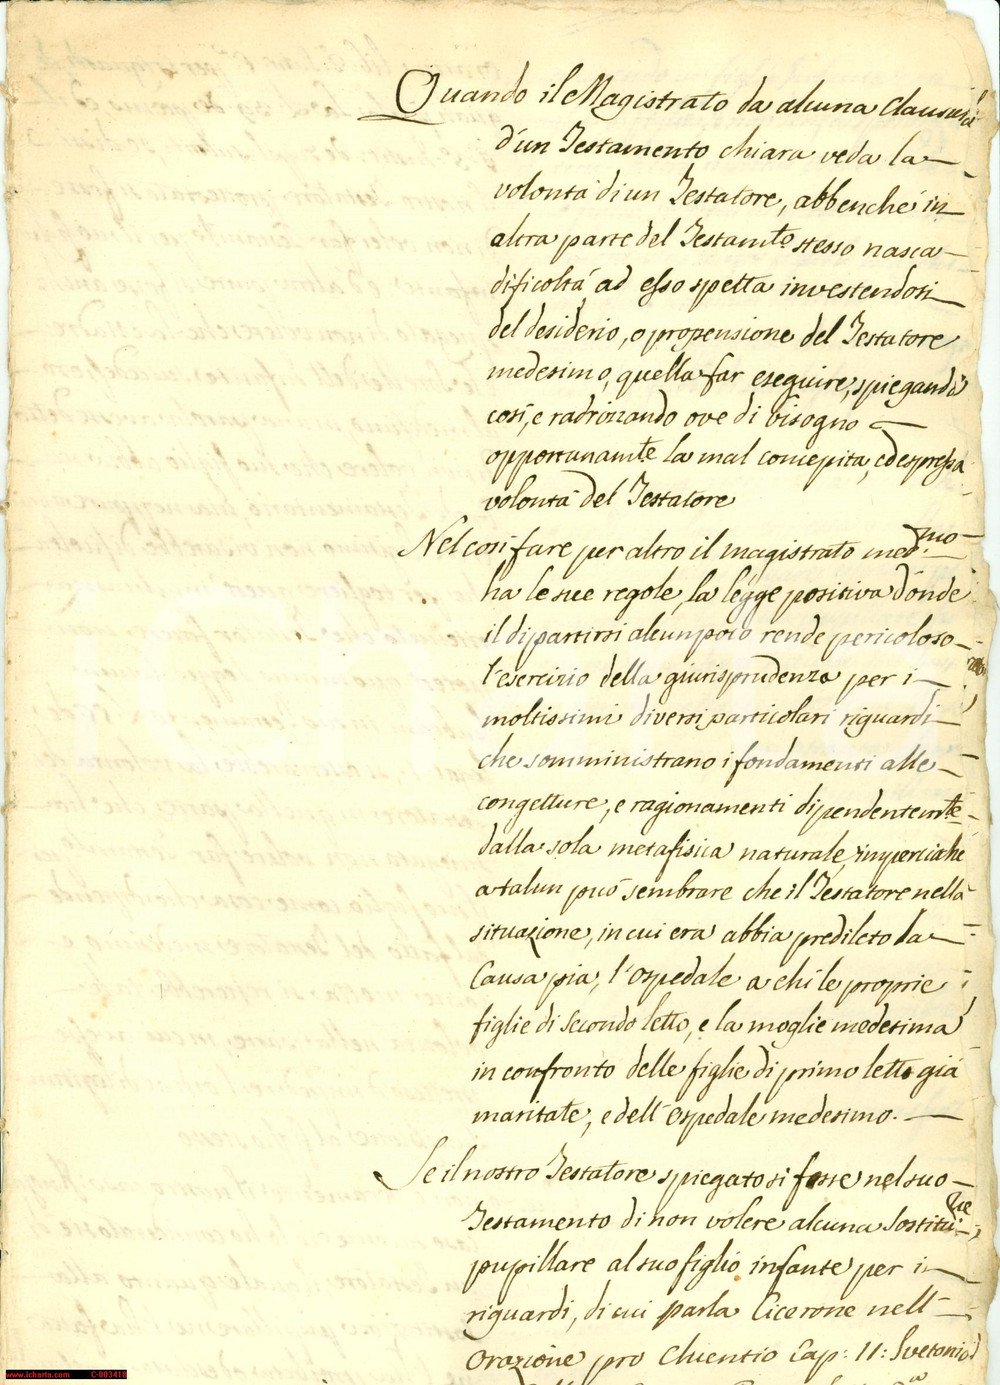 Quando il Magistrato da alcuna Clausula
d'un Testamento chiara veda la
volontà di un Testatore, abbenché in
altra parte del Testam.te stesso nasca
dificoltà ad esso spetta investendosi
del desiderio, o propensione del Testatore
medesimo, quella far eseguire, spiegando
così, e radrizzando ove di bisogno
opportunam.te la mal concepita, ed espressa
volontà del Testatore
Nel così fare per altro il magistrato med.mo
ha le sue regole, la legge positiva d'onde
il dipartirsi alcun poco rende pericoloso
l'esercizio della giurisprudenza per i
moltissimi diversi particolari riguardi
che somministrano i fondamenti alle
congetture, e ragionamenti dipendentem.te
dalla sola metafisica naturale, imperciché
a talun può sembrare che il Testatore nella
situazione, in cui era abbia predileto la
Causa pia, l'ospedale a chi le proprie
figlie di secondo letto, e la moglie medesima
in confronto delle figlie di primo letto già
maritate, e dell'ospedale medesimo.
Se il nostro Testatore spiegato si fosse nel suo
Testamento di non volere alcuna Sostitu.ne
pupillare al suo figlio infante per i
riguardi, di cui parla Cicerone nell'
Orazione pro Chientio Cap: 11: Svetonio
www.icharta.com C-003418